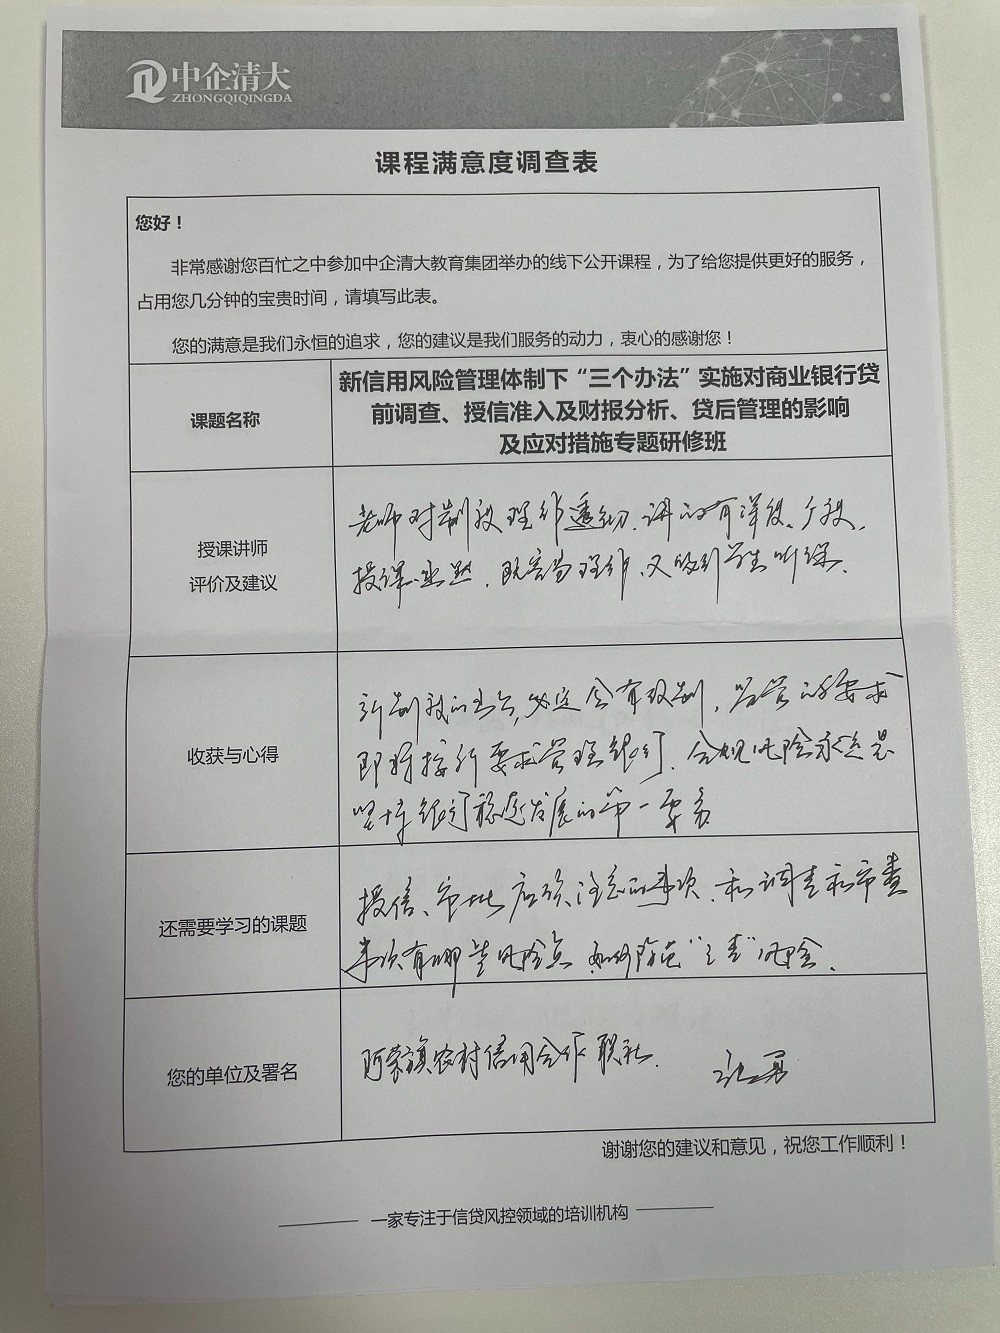 中企清大
ZHONGQIQINGDA
课程满意度调查表
您好！
非常感谢您百忙之中参加中企清大教育集团举办的线下公开课程，为了给您提供更好的服务，
占用您几分钟的宝贵时间，请填写此表。
您的满意是我们永恒的追求，您的建议是我们服务的动力，衷心的感谢您！
课题名称
新信用风险管理体制下“三个办法”实施对商业银行贷
前调查、授信准入及财报分析、贷后管理的影响
及应对措施专题研修班
授课讲师
评价及建议
老师对制度理解透彻、讲的有深度、广度、
授课，既富当理解，又吸引学生听课、
收获与心得
新制度的出台，必定会有改制，监管的要求
即将按新要求管理银行、合规风险永远是
坚持银行稳健发展的第一要务
还需要学习的课题
授信、审批应该注意的事项、和调查和审查
事项有哪些风险点 如何防范“三查”风险、
您的单位及署名
阿荣旗农村信用合作联社、
谢谢您的建议和意见，祝您工作顺利！
一家专注于信贷风控领域的培训机构